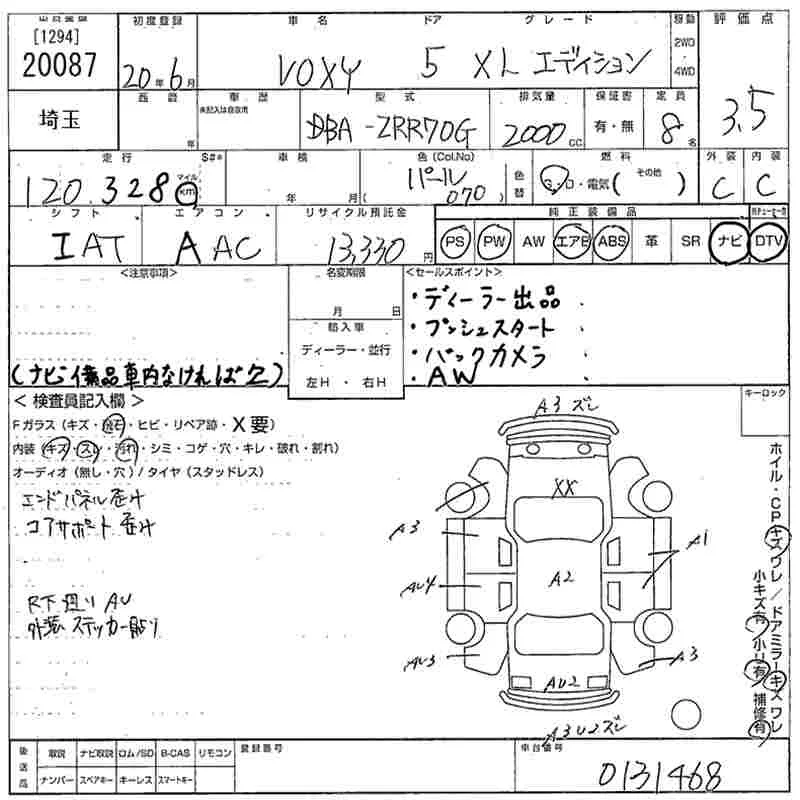 出品番号 初度登録 車名 ドア グレード 駆動 評価点
[1294]
20087
20年6月 VOXY 5 XL エディション 2WD 4WD
車歴 型式 排気量 保証書 定員
未記入は自家用
埼玉 年 DBA-ZRR70G 2000cc 有・無 8名 3.5
走行 S#* 車検 色(Col.No) 燃料 外装 内装
120.328 マイル km 年 月 パール ( 070 ) 色替 G・ロ・電気( その他 ) C C
シフト エアコン リサイクル預託金 純正装備品
IAT AAC 13,330円 PS PW AW エアB ABS 革 SR ナビ DTV
<注意事項> 名変期限 <セールスポイント>
月 日
・ディーラー出品
・プッシュスタート
・バックカメラ
・AW
輸入車
ディーラー・並行
左H ・ 右H
(ナビ備品車内なければ欠)
<検査員記入欄> キーロック
Fガラス(キズ・飛石・ヒビ・リペア跡・X要)
内装(キズ・スレ・汚れ・シミ・コゲ・穴・キレ・破れ・割れ)
オーディオ(無し・穴)/タイヤ(スタッドレス)
エンドパネル歪汁
コアサポート歪汁
R下廻り AU
外装ステッカー貼り
A3ズレ
XX
A3 A1
AU4 A2
AU3 A3
AU2
A3U2ズレ
ホイル・CPキズワレ/ドアミラーキズワレ
小キズ有 小凹有 補修有
後送品 取説 ナビ取説 ロム/SD B-CAS リモコン 登録番号 車台番号
ナンバー スペアキー キーレス スマートキー 0131468